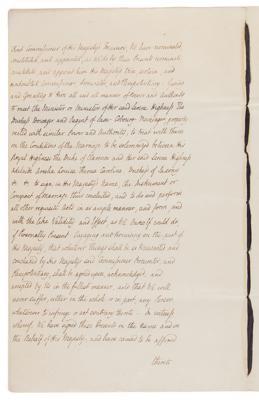 First Commissioner of His Majesty's Treasury, We have nominated
constituted and appointed, as We do by these Presents nominate
constitute and appoint him His Majesty's true certain, and
undoubted Commissioner, Procurator, and Plenipotentiary: Giving
and Granting to Him all and all manner of Power and Authority
to meet the Minister or Ministers of Her said Serene Highness The
Duchess Dowager and Regent of Saxe-Cobourg Meiningen, properly
vested with similar Power and Authority, to treat with them
on the Conditions of the Marriage to be solemnized between His
Royal Highness The Duke of Clarence and Her said Serene Highness
Adelaide Amelia Louisa Theresa Carolina Duchess of Saxony
&c &c to sign, in His Majesty's Name, the Instrument or
Compact of Marriage thus concluded, and to do and perform
all other requisite Acts in as ample manner, and form, and
with the like Validity and Effect, as We Ourself could do
if Personally Present. Engaging and Promising on the part of
His Majesty, that whatever things shall be so transacted and
concluded by His Majesty's said Commissioner Procurator, and
Plenipotentiary, shall be agreed upon, acknowledged, and
accepted by Us in the fullest manner, and that We will
never suffer, either in the whole or in part, any Person
whatsoever to infringe or act contrary thereto. In witness
whereof, We have signed these Presents in the Name and on
the Behalf of His Majesty, and have caused to be affixed
thereto